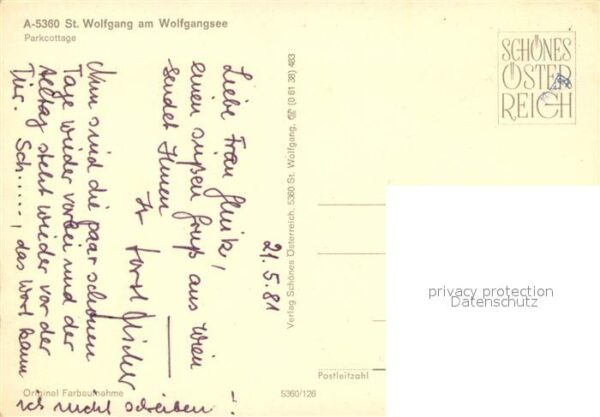 A-5360 St. Wolfgang am Wolfgangsee
Parkcottage
Liebe Frau
einen süßen Gruß aus Wien
sendet Ihnen
Ihr Horst Fischer
21.5.81
Nun sind die paar schönen
Tage wieder vorbei und der
Alltag steht wieder vor der
Tür. Sch....., das Wort kann
ich nicht schreiben!
Verlag Schönes Österreich, 5360 St. Wolfgang, ☎ (0 61 38) 483
SCHÖNES
ÖSTER
REICH
privacy protection
Datenschutz
Postleitzahl
Original Farbaufnahme
5360/126